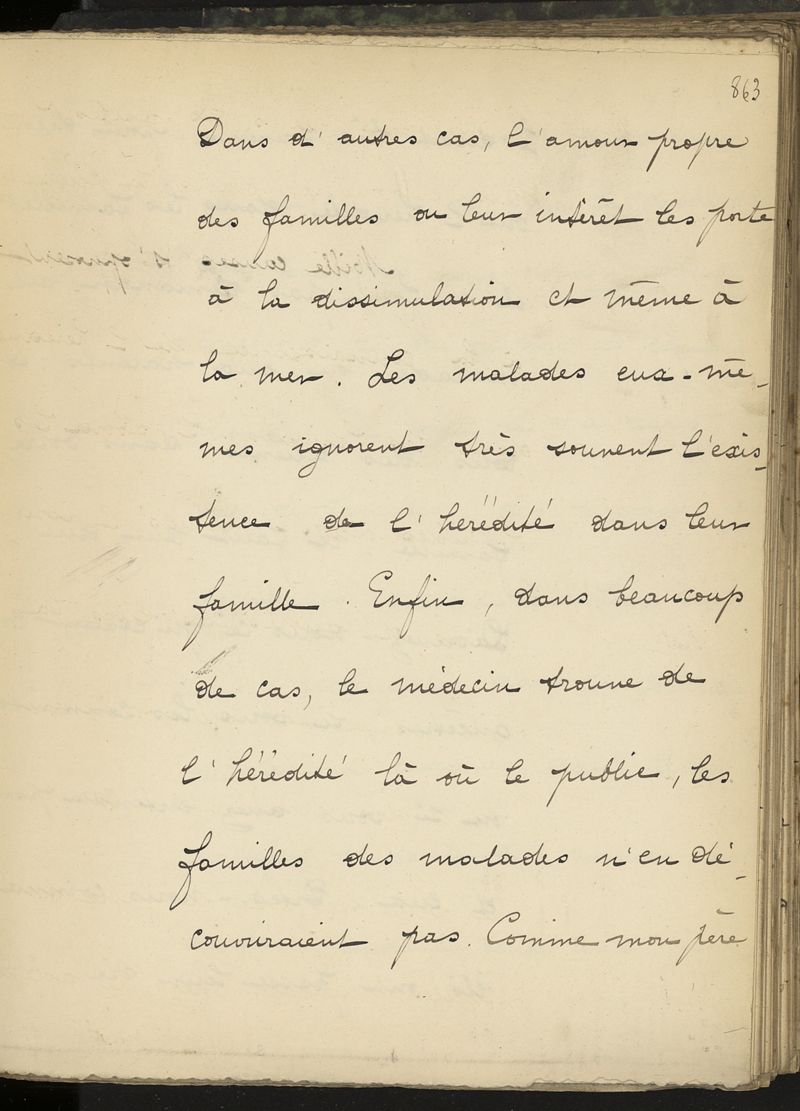 863
Dans d'autres cas, l'amour propre
des familles ou leur intérêt les porte
à la dissimulation et même à
la mer. Les malades eux-mê-
mes ignorent très souvent l'exis-
tence de l'hérédité dans leur
famille. Enfin, dans beaucoup
de cas, le médecin trouve de
l'hérédité là où le public, les
familles des malades n'en dé-
couvriraient pas. Comme mon père